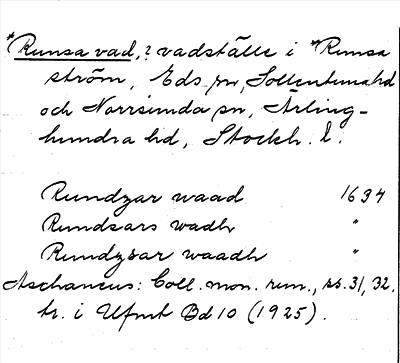 *Runsa vad, ? vadställe i *Runsa
ström, Eds sn, Sollentuna hd
och Norrsunda sn, Ärling-
hundra hd, Stockh. l.
Rundzar waad 1634
Rundsars wadh "
Rundysar waadh "
Aschaneus: Coll. mon. run., ss. 31, 32.
tr. i Ufmt Bd 10 (1925).